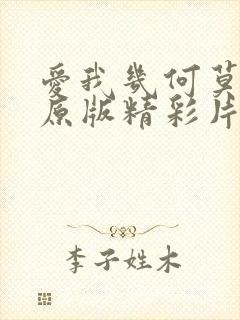 爱我几何莫
原版精彩片
李子姓木